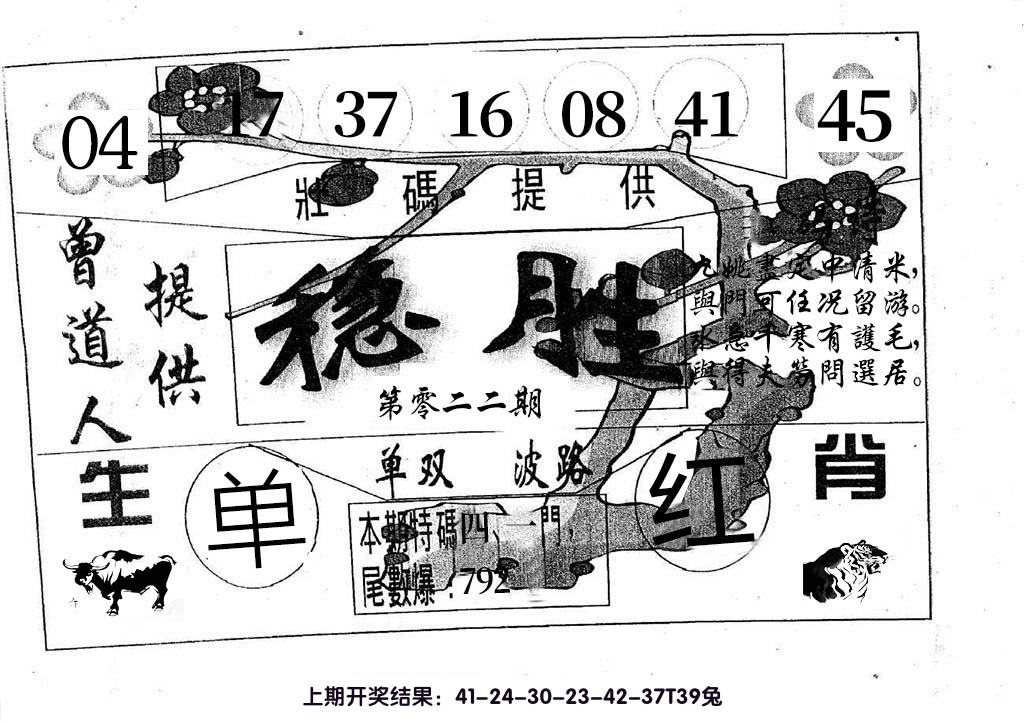 04 17 37 16 08 41 45
壯碼提供
曾道人
提供
稳胜
第零二二期
九姚盡定中情米，
與門可任况留游。
水急牛寒有護毛，
與得夫勞問選居。
生肖
单双 波路
单 红
本期特碼四、一門，
尾數爆：792
上期开奖结果：41-24-30-23-42-37T39兔